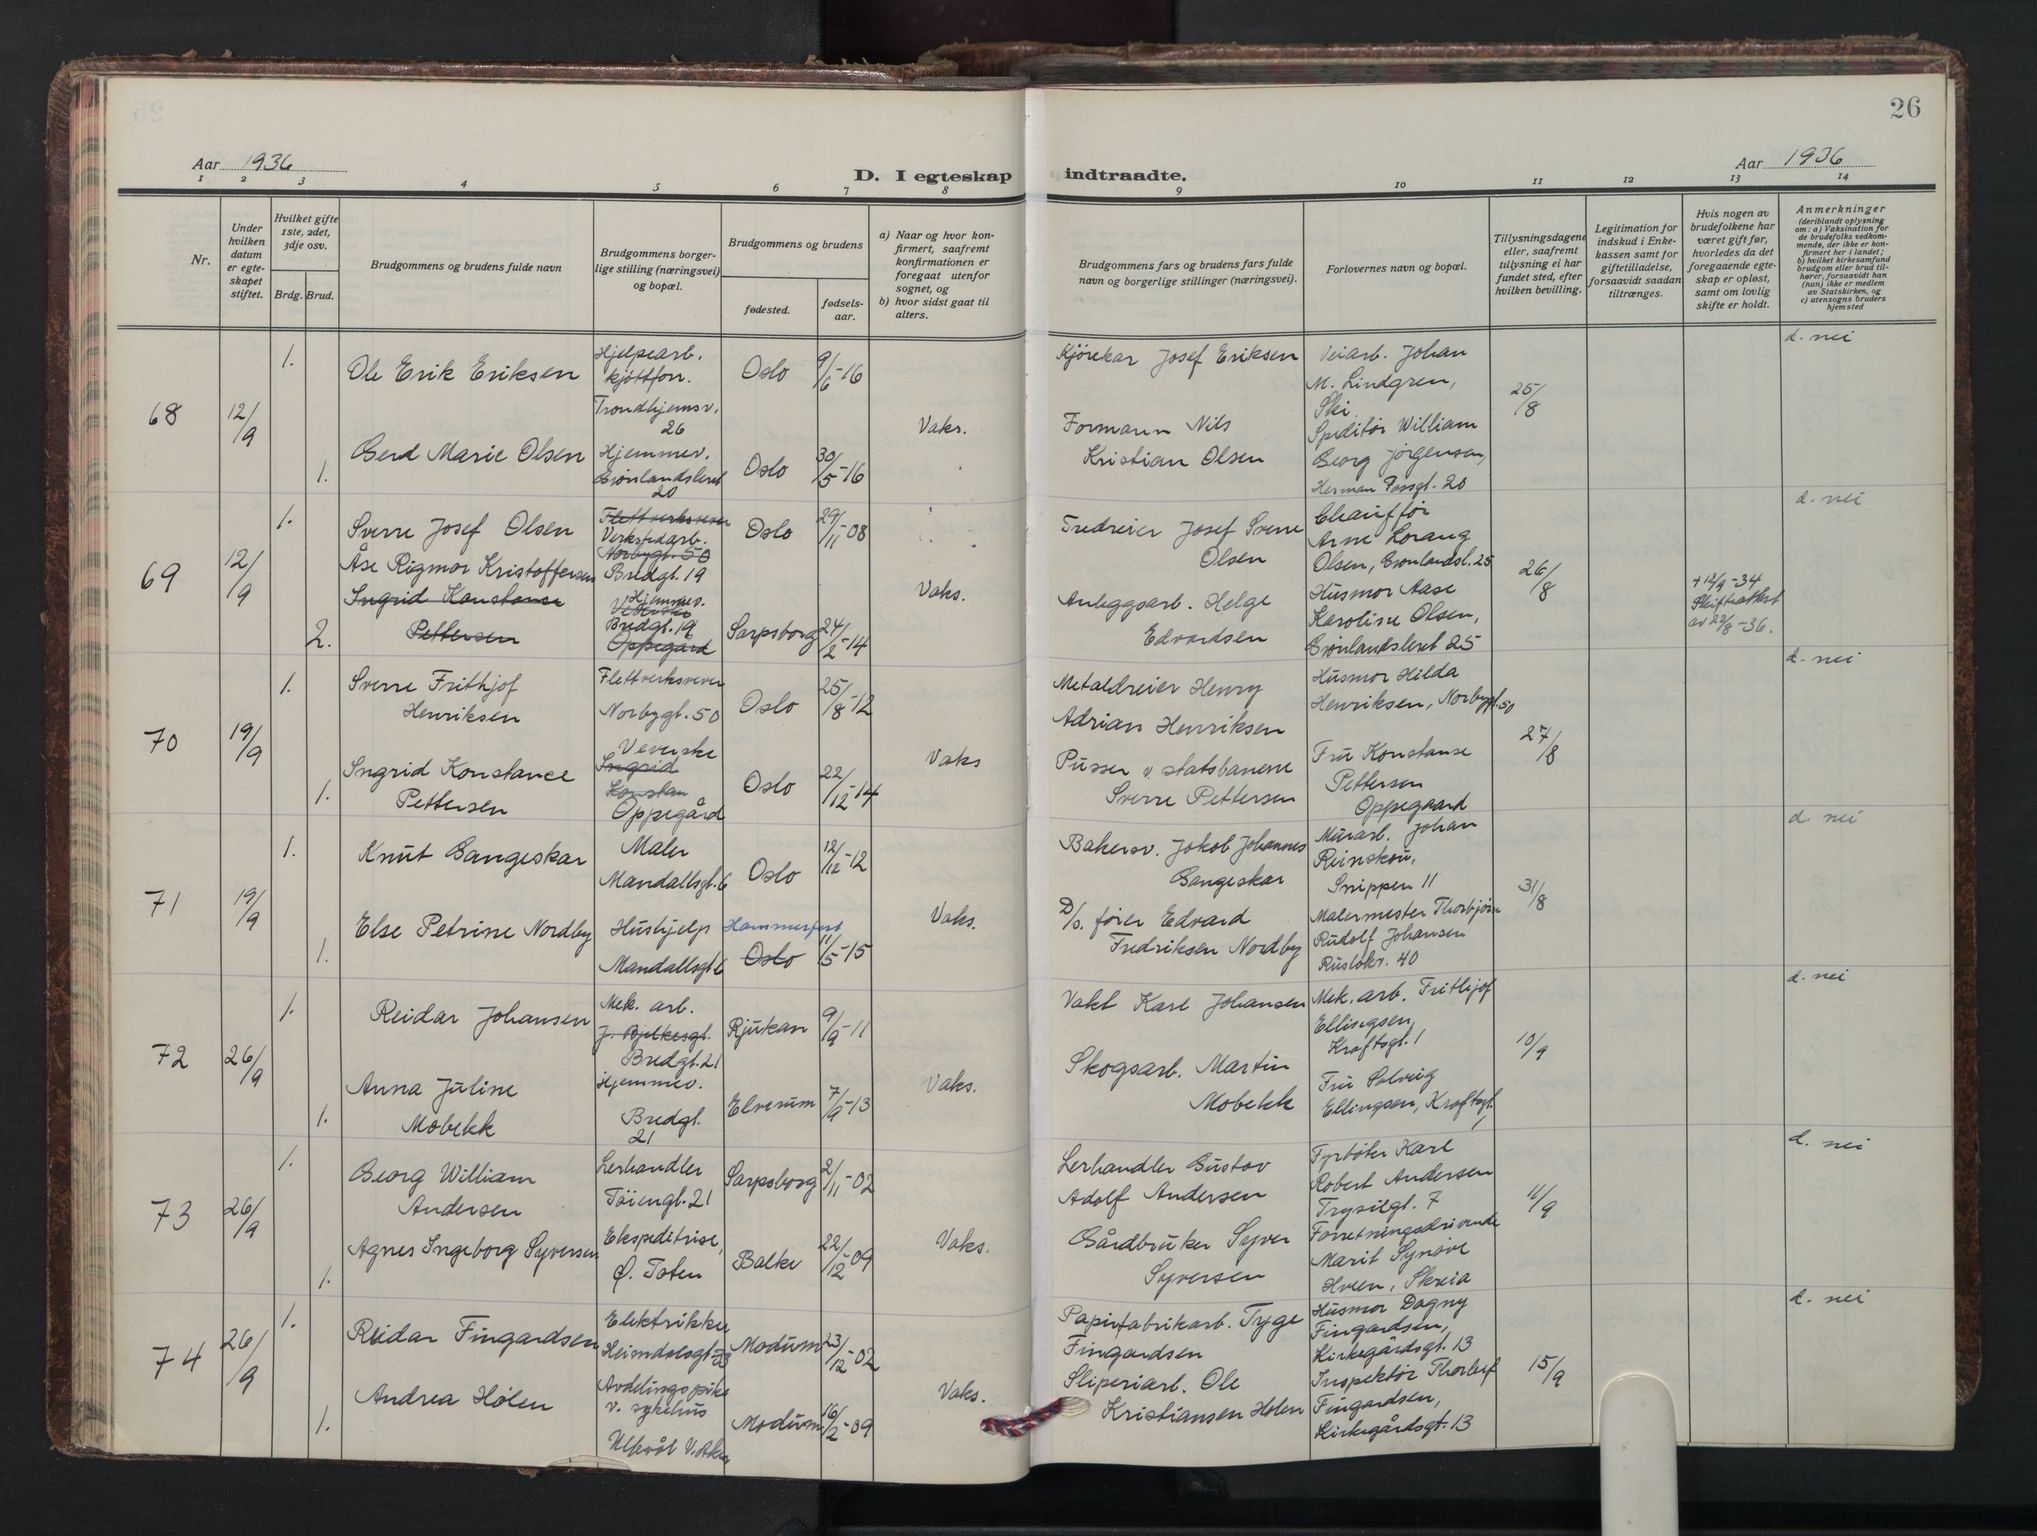 26
Aar 1936
D. I egteskap indtraadte.
Aar 1936
1 2 3 4 5 6 7 8 9 10 11 12 13 14
Nr.
Under hvilken datum er egteskapet stiftet.
Hvilket gifte 1ste, 2det, 3dje osv.
Brdg. Brud.
Brudgommens og brudens fulde navn
Brudgommens borgerlige stilling (næringsvei) og bopæl.
Brudgommens og brudens
fødested.
fødselsaar.
a) Naar og hvor konfirmert, saafremt konfirmationen er foregaat utenfor sognet, og
b) hvor sidst gaat til alters.
Brudgommens fars og brudens fars fulde navn og borgerlige stillinger (næringsvei).
Forlovernes navn og bopæl.
Tillysningsdagene eller, saafremt tillysning ei har fundet sted, efter hvilken bevilling.
Legitimation for indskud i Enkekassen samt for giftetilladelse, forsaavidt saadan tiltrænges.
Hvis nogen av brudefolkene har været gift før, hvorledes da det foregaaende egteskap er opløst, samt om lovlig skifte er holdt.
Anmerkninger
(deriblandt oplysning om: a) Vaksination for de brudefolks vedkommende, der ikke er konfirmert her i landet;
b) hvilket kirkesamfund brudgom eller brud tilhører, forsaavidt han (hun) ikke er medlem av Statskirken, og
c) utensogns bruders hjemsted
68
12/9
1.
Ole Erik Eriksen
Hjelpearb.
kjøttforr.
Trondhjemsv.
26
Oslo
9/6-16
1.
Gerd Marie Olsen
Hjemmev.
Grønlandsleret
20
Oslo
30/5-16
Vaks.
Kjørekar Josef Eriksen
Formann Nils
Kristian Olsen
Veiarb. Johan
M. Lindgren,
Ski.
Speditør William
Georg Jørgensen,
Herman Fossgt. 20
25/8
d. nei
69
12/9
1.
Sverre Josef Olsen
Flettverksvever
Verkstedarb.
Norbygt. 50
Bredgt. 19
Oslo
29/11-08
2.
Åse Rigmor Kristoffersen
Ingrid Konstance
Pettersen
Hjemmev.
Veverske
Bredgt. 19
Oppegård
Sarpsborg
24/2-14
Vaks.
Tredreier Josef Sverre
Olsen
Anleggsarb. Helge
Edvardsen
Chauffør
Arne Lorang
Olsen, Grønlandsl. 25
Husmor Aase
Karoline Olsen,
Grønlandsleret 25
26/8
+ 12/9-34
Skifteattest
av 22/8-36.
d. nei
70
19/9
1.
Sverre Frithjof
Henriksen
Flettverksvever
Norbygt. 50
Oslo
25/8-12
1.
Ingrid Konstance
Pettersen
Veverske
Ingrid
Konstan
Oppegård
Oslo
22/12-14
Vaks
Metaldreier Henry
Adrian Henriksen
Pusser v. statsbanene
Sverre Pettersen
Husmor Hilda
Henriksen, Norbygt. 50
Fru Konstanse
Pettersen
Oppegaard
27/8
d. nei
71
19/9
1.
Knut Gangeskar
Maler
Mandallsgt. 6
Oslo
12/12-12
1.
Else Petrine Nordby
Hushjelp
Mandallsgt. 6
Hammerfest
Oslo
11/5-15
Vaks.
Bakersv. Jokob Johannes
Gangeskar
D/s. fører Edvard
Fredriksen Nordby
Murarb. Johan
Reinskou,
Snippen 11
Malermester Thorbjørn
Rudolf Johansen
Rusløkv. 40
31/8
d. nei
72
26/9
1.
Reidar Johansen
Mek. arb.
J. Bjelkesgt.
Bredgt. 21
Rjukan
9/9-11
1.
Anna Juline
Mobekk
Hjemmev.
Bredgt.
21
Elverum
7/9-13
Vaks.
Vakt Karl Johansen
Skogsarb. Martin
Mobekk
Mek. arb. Frithjof
Ellingsen,
Kroftsgt. 1
Fru Solveig
Ellingsen, Kroftsgt.
1
10/9
d. nei
73
26/9
1.
Georg William
Andersen
Lerhandler
Töiengt. 21
Sarpsborg
2/11-02
1.
Agnes Ingeborg Syversen
Ekspeditrise,
Ø. Toten
Balke
22/12-09
Vaks.
Lerhandler Gustav
Adolf Andersen
Gårdbruker Syver
Syversen
Fyrbøter Karl
Robert Andersen
Trysilgt. 7
Forretningsdrivende
Marit Synøve
Hveen, Skreia
11/9
d. nei
74
26/9
1.
Reidar Fingardsen
Elektriker
Heimdalsgt. 33
Modum
23/12-02
1.
Andrea Holen
Avdelingspike
v. sykehus
Ullevål V. Aker
Modum
16/2-09
Vaks.
Papirfabrikarb. Tyge
Fingardsen
Sliperiarb. Ole
Kristiansen Holen
Husmor Dagny
Fingardsen,
Kirkegårdsgt. 13
Inspektør Thorleif
Fingardsen,
Kirkegårdsgt. 13
15/9
d. nei